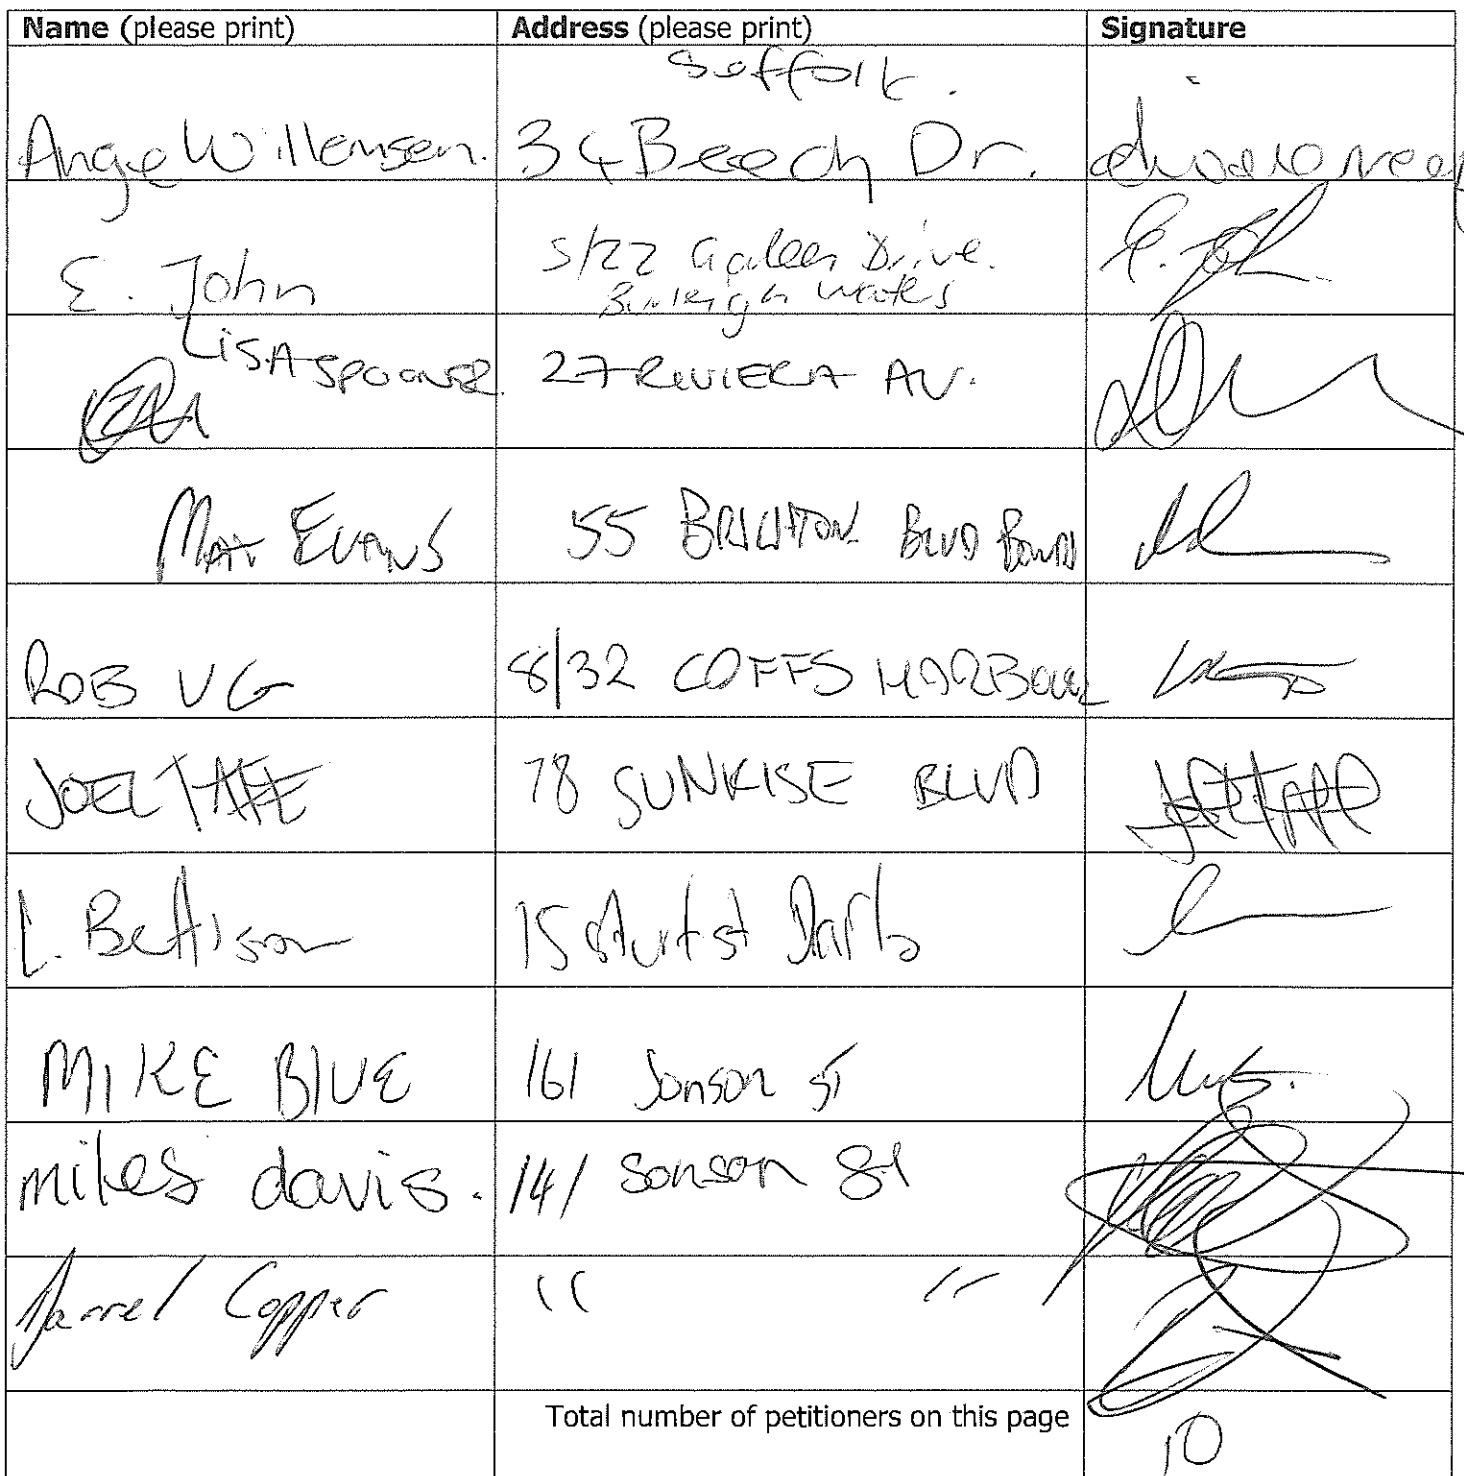 Name (please print) Address (please print) Signature
Suffolk.
Ange Willemsen. 34 Beech Dr.
E. John 5/22 Drive. E. John
Burleigh Waters
LISA SPOONER 27 RIVIERA AV.
MATT EVANS 55 BRIGHTON BLVD BONDI
ROB VG 8/32 COFFS HARBOUR
JOEL TAFE 78 SUNRISE BLVD
L. Bettison 15 Sturt st
MIKE BLUE 161 Jonson ST
miles davis. 141 Jonson St
Jarrel Copper " "
Total number of petitioners on this page 10